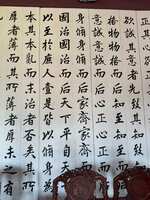 正其心
欲誠其意者先致其知致
物格而后知至知至
意誠意誠而后心正心
身脩身脩而后家齊家齊而
國治國治而后天下平自天
以至於庶人壹是皆以脩身為
本其本亂而末治者否矣其所
厚者薄而其所薄者厚未之有